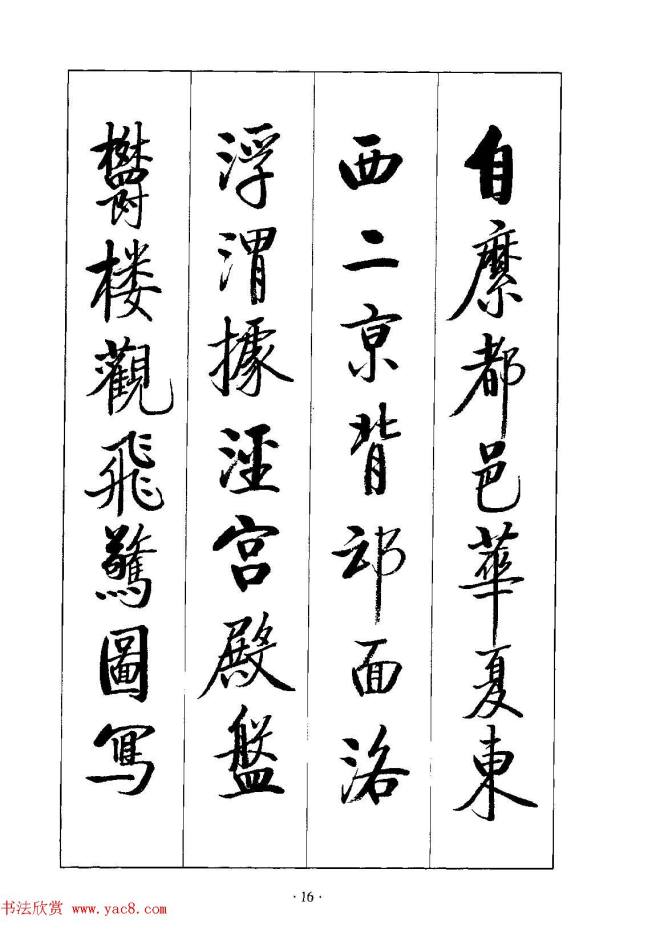 自縻都邑華夏東
西二京背邙面洛
浮渭據涇宮殿盤
欝楼觀飛驚圖寫
·16·
书法欣赏 www.yac8.com